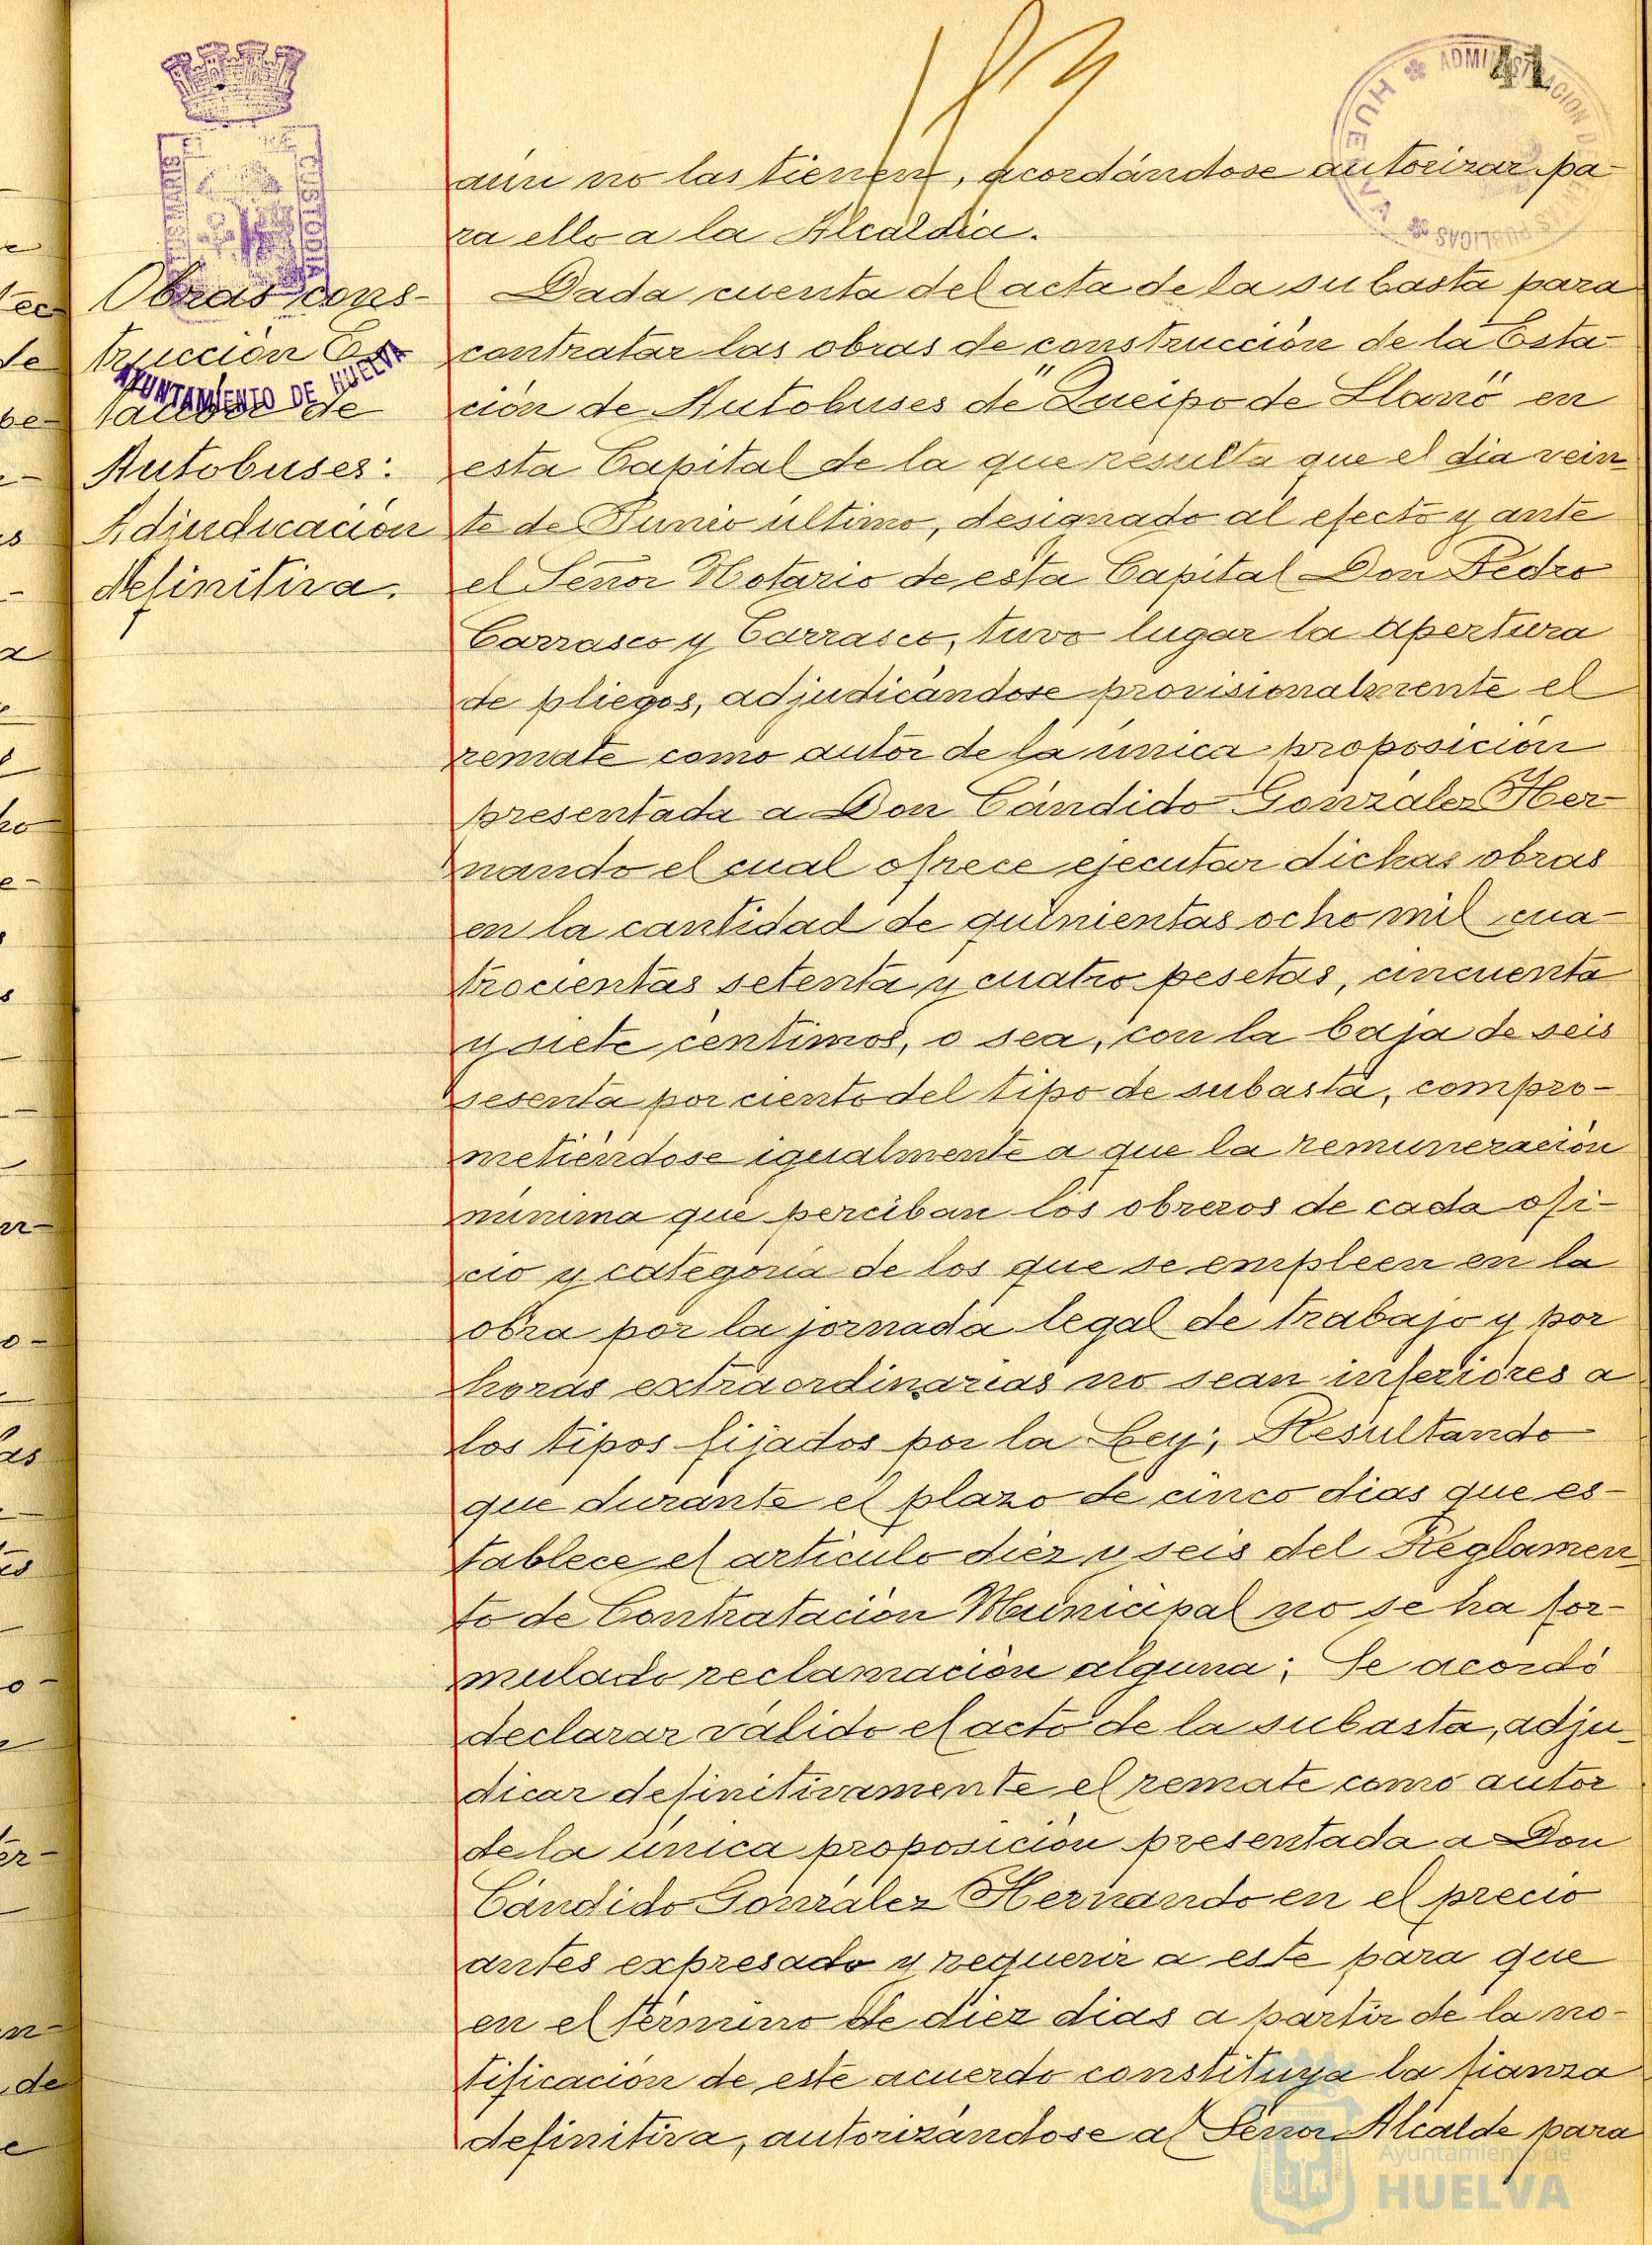 41
ADMINISTRACION DE
PUBLICAS
HUELVA
CUSTODIA
AYUNTAMIENTO DE HUELVA
Obras cons-
trucción Es
tación de
Autobuses:
Adjudicación
definitiva.
aún no las tienen, acordándose autorizar pa-
ra ello a la Alcaldía.
Dada cuenta del acta de la subasta para
contratar las obras de construcción de la Esta-
ción de Autobuses de "Queipo de Llano" en
esta Capital de la que resulta que el dia vein-
te de Junio último, designado al efecto y ante
el Señor Notario de esta Capital Don Pedro
Carrasco y Carrasco, tuvo lugar la apertura
de pliegos, adjudicándose provisionalmente el
remate como autor de la única proposición
presentada a Don Cándido González Her-
nando el cual ofrece ejecutar dichas obras
en la cantidad de quinientas ocho mil cua-
trocientas setenta y cuatro pesetas, cincuenta
y siete céntimos, o sea, con la baja de seis
sesenta por ciento del tipo de subasta, compro-
metiéndose igualmente a que la remuneración
mínima que perciban los obreros de cada ofi-
cio y categoría de los que se empleen en la
obra por la jornada legal de trabajo y por
horas extraordinarias no sean inferiores a
los tipos fijados por la Ley; Resultando
que durante el plazo de cinco dias que es-
tablece el artículo diez y seis del Reglamen-
to de Contratación Municipal no se ha for-
mulado reclamación alguna; Se acordó
declarar válido el acto de la subasta, adju-
dicar definitivamente el remate como autor
de la única proposición presentada a Don
Cándido González Hernando en el precio
antes expresado y requerir a este para que
en el término de diez dias a partir de la no-
tificación de este acuerdo constituya la fianza
definitiva, autorizándose al Señor Alcalde para
Ayuntamiento de
HUELVA